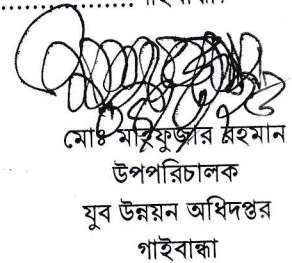 ................................ গাইবান্ধা।
মোঃ মাহফুজার রহমান
উপপরিচালক
যুব উন্নয়ন অধিদপ্তর
গাইবান্ধা